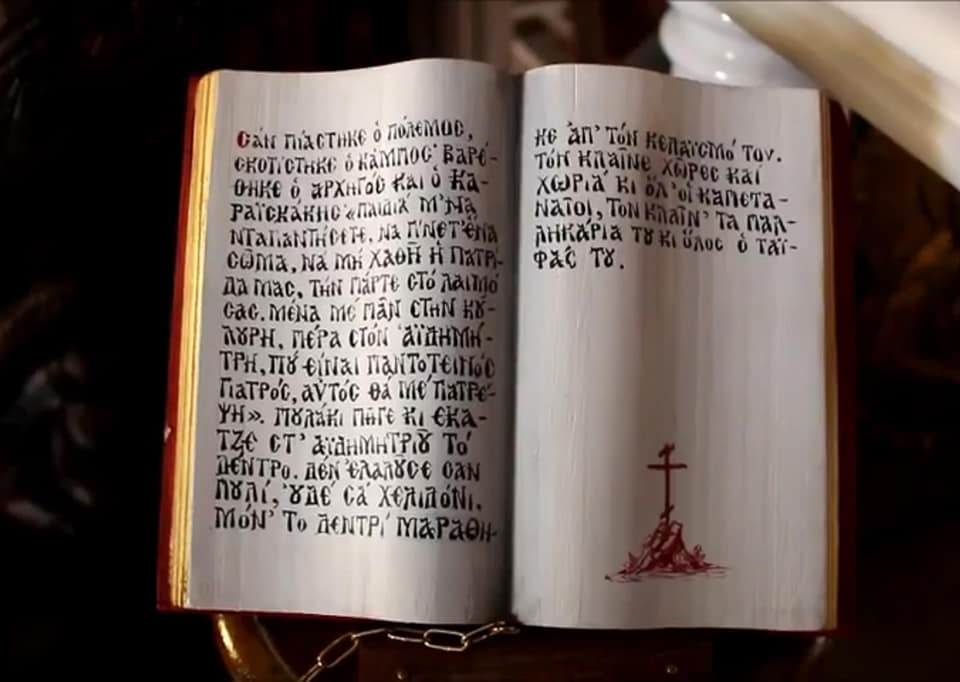 Σάν πιάστηκε ὁ πόλεμος,
σκοτίστηκε ὁ κάμπος· βαρέ-
θηκε ὁ ἀρχηγός καί ὁ Κα-
ραϊσκάκης· «παιδιά μ' νά
νταγιαντήσετε, νά γίνετ' ἕνα
σῶμα, νά μή χαθῆ ἡ πατρί-
δα μας, τήν πάρτε στό λαιμό
σας. μένα μέ πᾶν στήν Κȣ-
λȣρη, πέρα στόν Ἁϊδημή-
τρη, πȣ εἶναι παντοτεινός
γιατρός, αὐτός θά μέ γιατρέ-
ψη». Πȣλάκι πῆγε κι ἔκα-
τζε στ' Ἁϊδημητριȣ τό
δέντρο. δέν ἐλαλȣσε σάν
πȣλί, ȣδέ σά χελιδόνι,
μόν' τό δεντρί μαράθη-
κε ἀπ' τόν κελαϊσμό τον.
τόν κλαῖνε χῶρες καί
χωριά κι ὅλ' οἱ καπετα-
ναῖοι, τόν κλαῖν' τά παλ-
ληκάρια τȣ κι ὅλος ὁ ταϊ-
φᾶς τȣ.